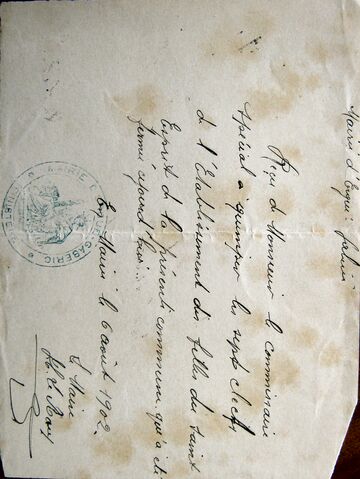 Mairie d'Ergué-Gabéric
Reçu de Monsieur le commissaire
spécial à Quimper les sept clefs
de l'Etablissement des filles du Saint
Esprit de la présente commune qui a été
fermé aujourd'hui.
En Mairie le 6 août 1902.
Le Maire
MAIRIE D'ERGUÉ GABERIC
FINISTERE